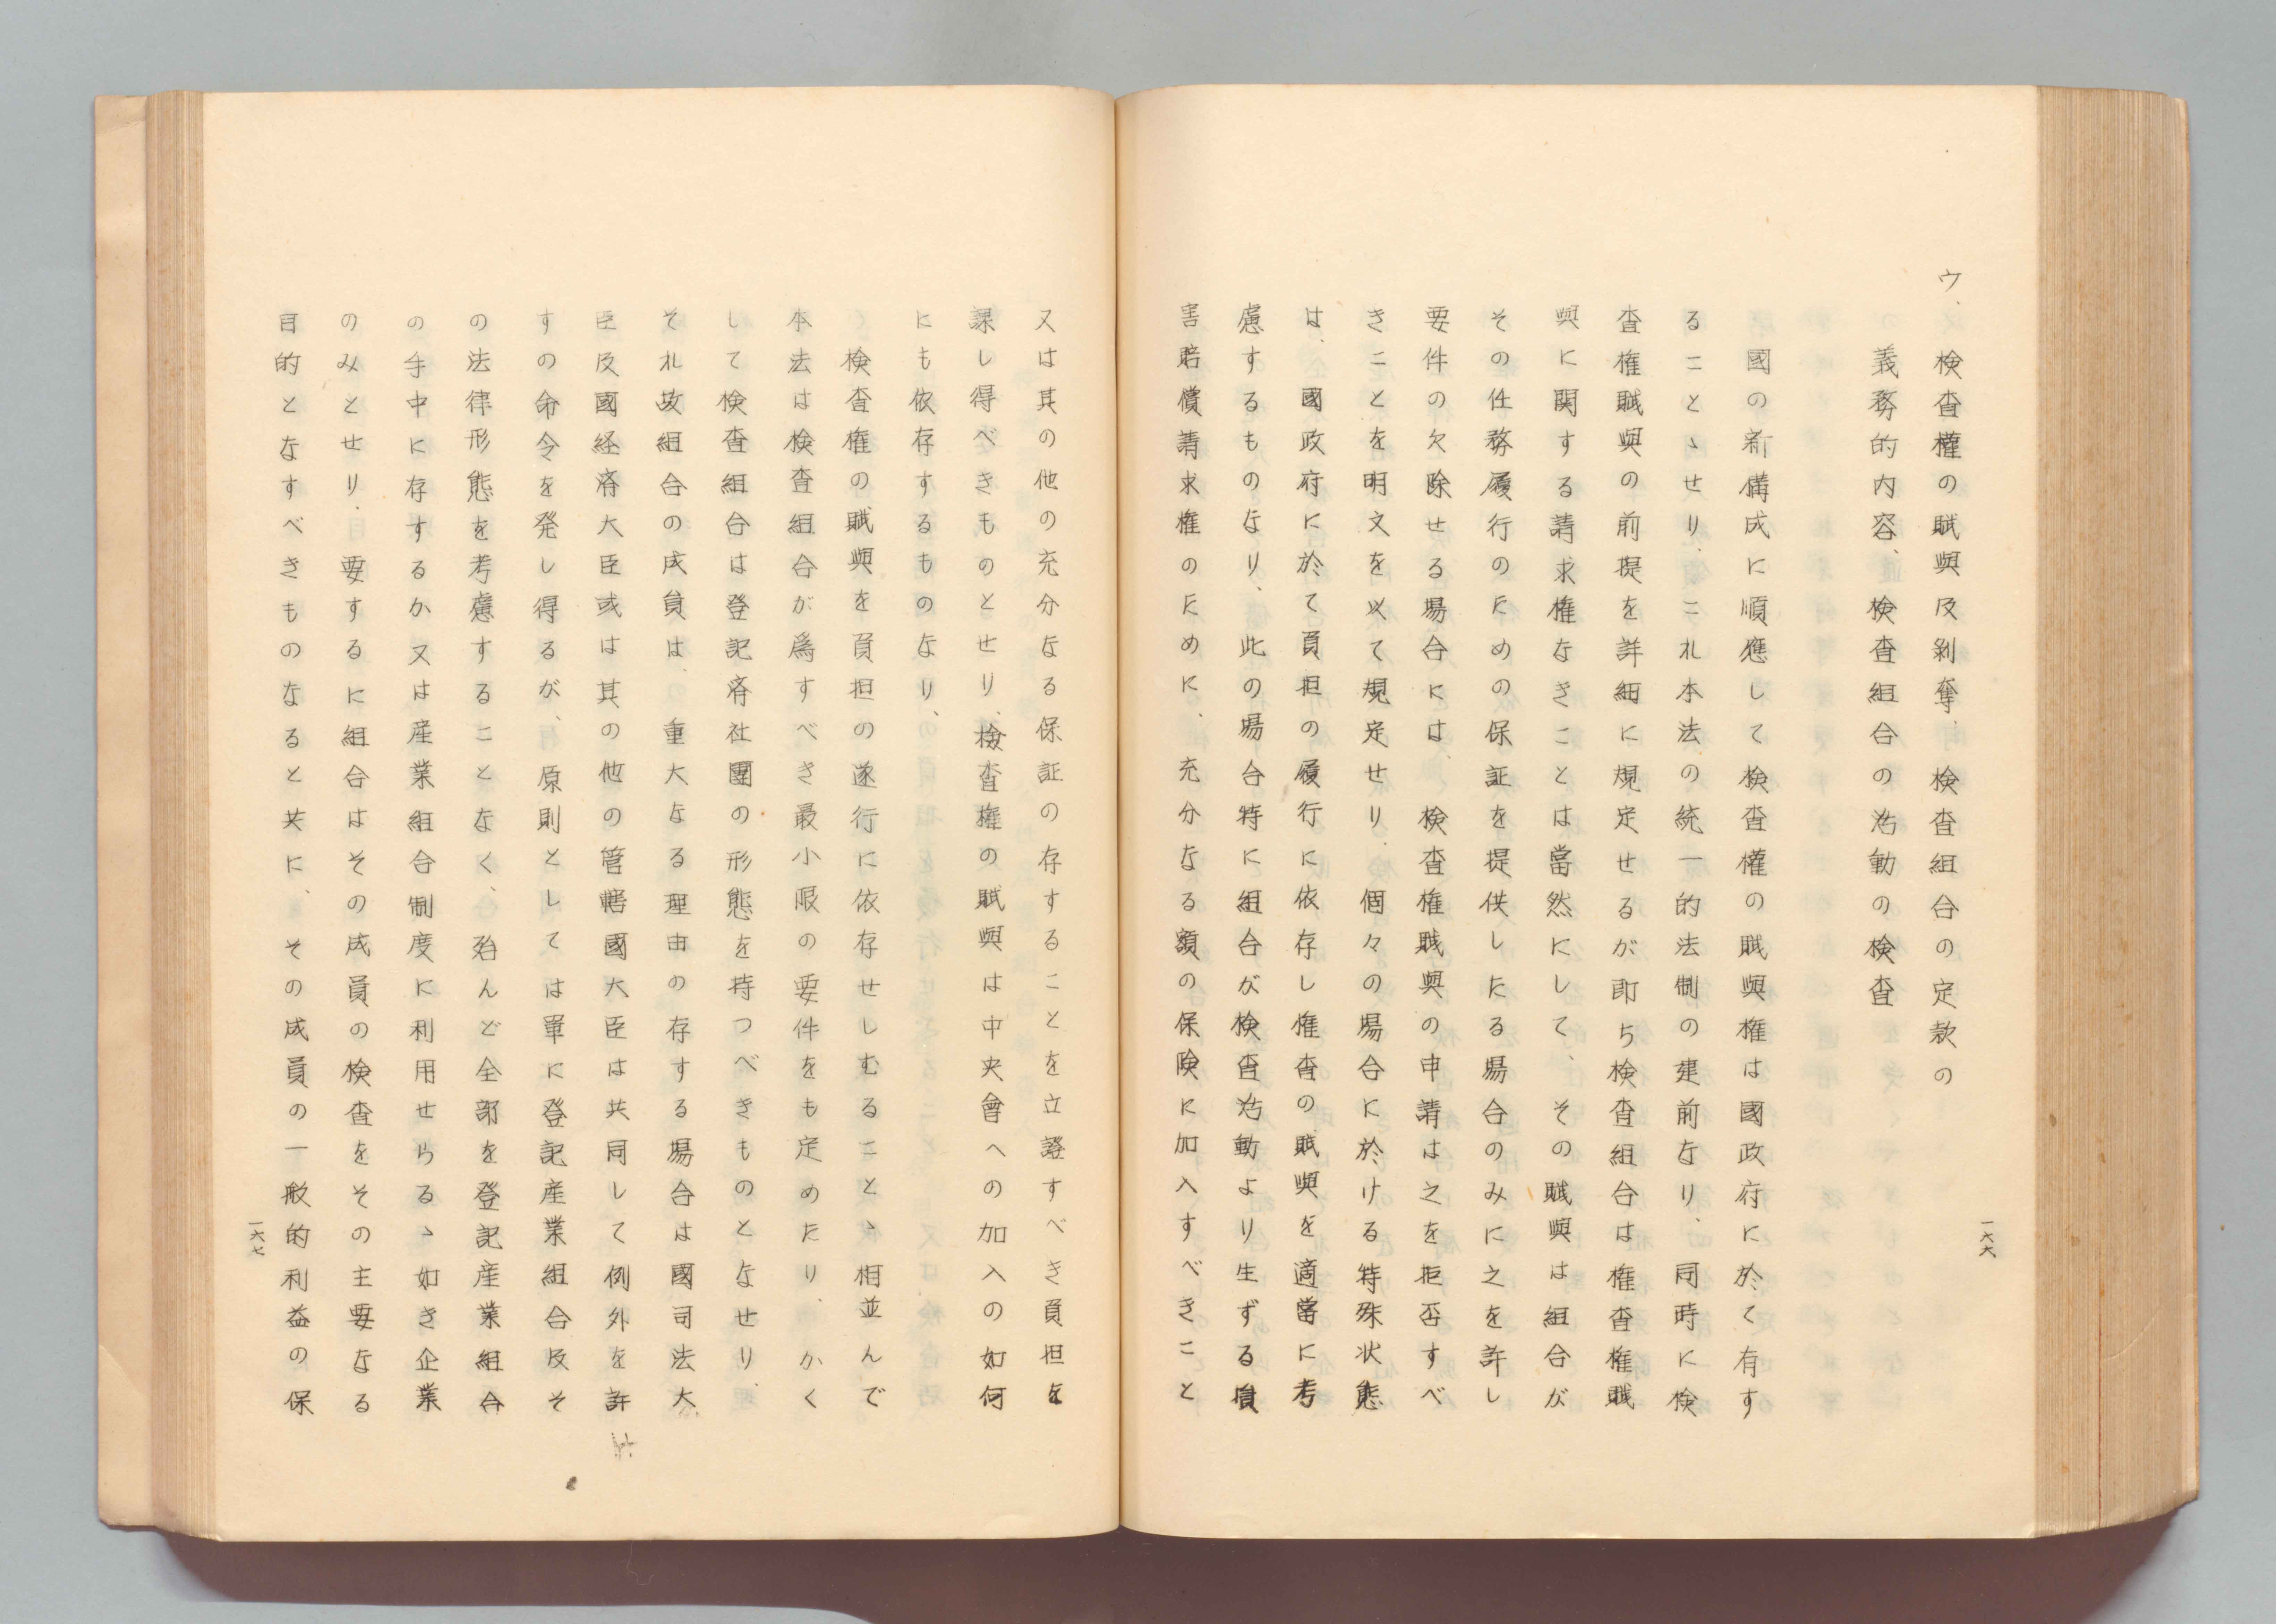 ウ、検査權の賦與及剥奪、検査組合の定款の
義務的内容、検査組合の活動の検査
國の新構成に順應して検査權の賦與權は國政府に於て有す
ることゝせり、これ本法の統一的法制の建前なり、同時に検
査権賦與の前提を詳細に規定せるが即ち検査組合は権査権賦
與に関する請求権なきことは當然にして、その賦與は組合が
その任務履行のための保証を提供したる場合のみに之を許し
要件の欠除せる場合には、検査権賦與の申請は之を拒否すべ
きことを明文を以て規定せり、個々の場合に於ける特殊状態
は、國政府に於て負担の履行に依存し権査の賦與を適當に考
慮するものなり、此の場合特に組合が検査活動より生ずる損
害賠償請求権のために、充分なる額の保険に加入すべきこと
一六六
又は其の他の充分なる保証の存することを立證すべき負担を
課し得べきものとせり、検査権の賦與は中央會への加入の如何
にも依存するものなり、
検査権の賦與を負担の遂行に依存せしむることゝ相並んで
本法は検査組合が爲すべき最小限の要件をも定めたり、かく
して検査組合は登記済社團の形態を持つべきものとなせり、
それ故組合の成員は、重大なる理由の存する場合は國司法大
臣及國経済大臣或は其の他の管轄國大臣は共同して例外を許
すの命令を発し得るが、原則としては單に登記産業組合及そ
の法律形態を考慮することなく、殆んど全部を登記産業組合
の手中に存するか又は産業組合制度に利用せらるゝ如き企業
のみとせり、要するに組合はその成員の検査をその主要なる
目的となすべきものなると共に、その成員の一般的利益の保
一六七